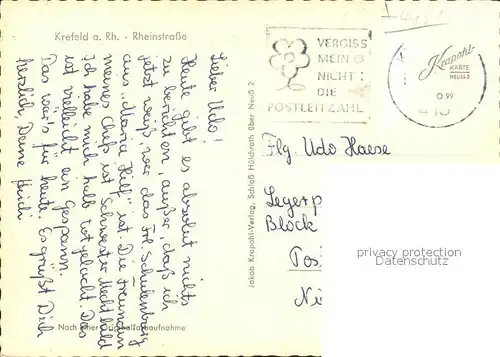 Krefeld a. Rh. - Rheinstraße
Lieber Udo!
Heute gibt es absolut nichts
zu berichten, außer, daß ich
jetzt weiß, wer das Frl. Schulenburg
aus "Maria Hilf" ist. Die Freundin
meines Chefs ist Schwester Mechthild
Ich habe mich halb tot gelacht. Das
ist vielleicht ein Gespann.
Das war's für heute. Es grüßt Dich
herzlich, Deine
Nach einer
aufnahme
VERGISS
MEIN
NICHT:
DIE
POSTLEITZAHL
Krapohl-
KARTE
NEUSS 2
O 99
Jakob Krapohl-Verlag, Schloß Hülchrath über Neuß 2
Flg. Udo Haese
Legerp
Block
Pos
Nü
privacy protection
Datenschutz